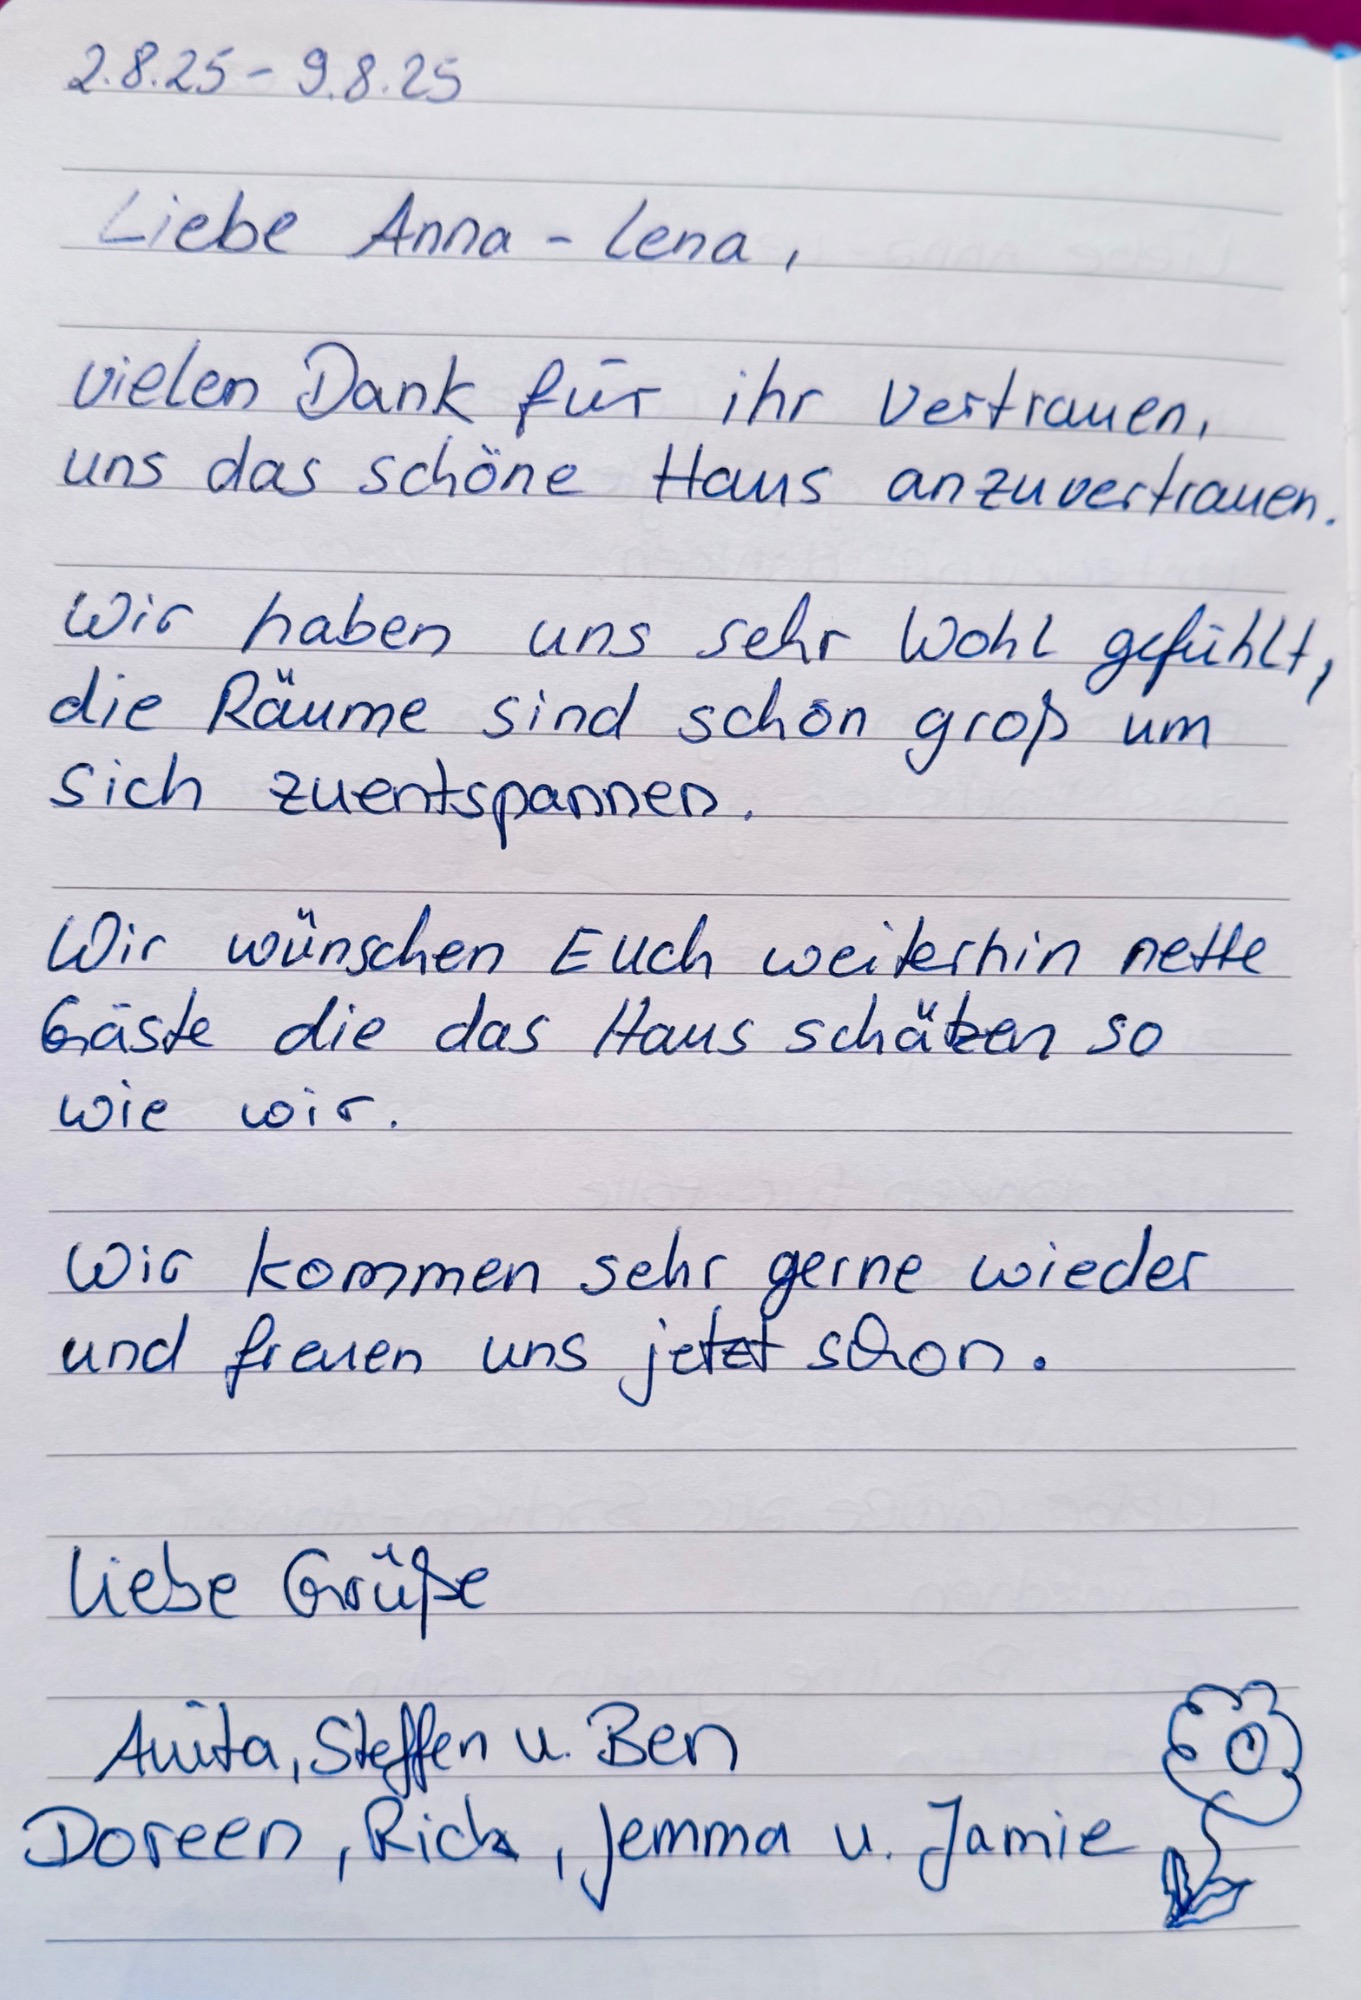 2.8.25 - 9.8.25
Liebe Anna - Lena,
vielen Dank für ihr Vertrauen,
uns das schöne Haus anzuvertrauen.
Wir haben uns sehr Wohl gefühlt,
die Räume sind schön groß um
sich zuentspannen.
Wir wünschen Euch weiterhin nette
Gäste die das Haus schätzen so
wie wir.
Wir kommen sehr gerne wieder
und freuen uns jetzt schon.
Liebe Grüße
Anita, Steffen u. Ben
Doreen, Rick, Jemma u. Jamie